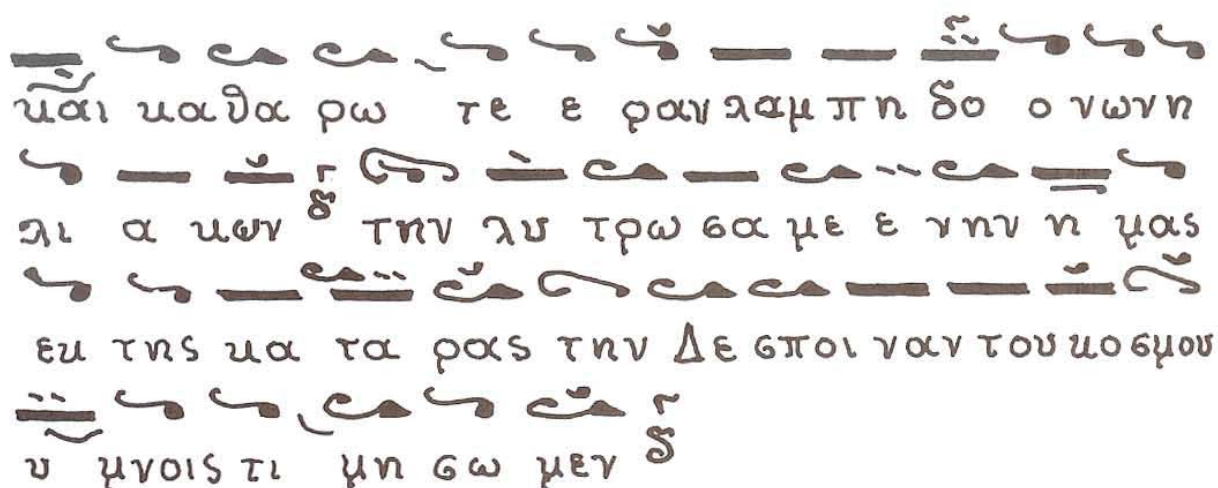 και κα θα ρω τε ε ραν λαμ πη δο ο νων η
λι α κων δ την λυ τρω σα με ε νην η μας
εκ της κα τα ρας την Δε σποι ναν του κο σμου
υ μνοις τι μη σω μεν δ